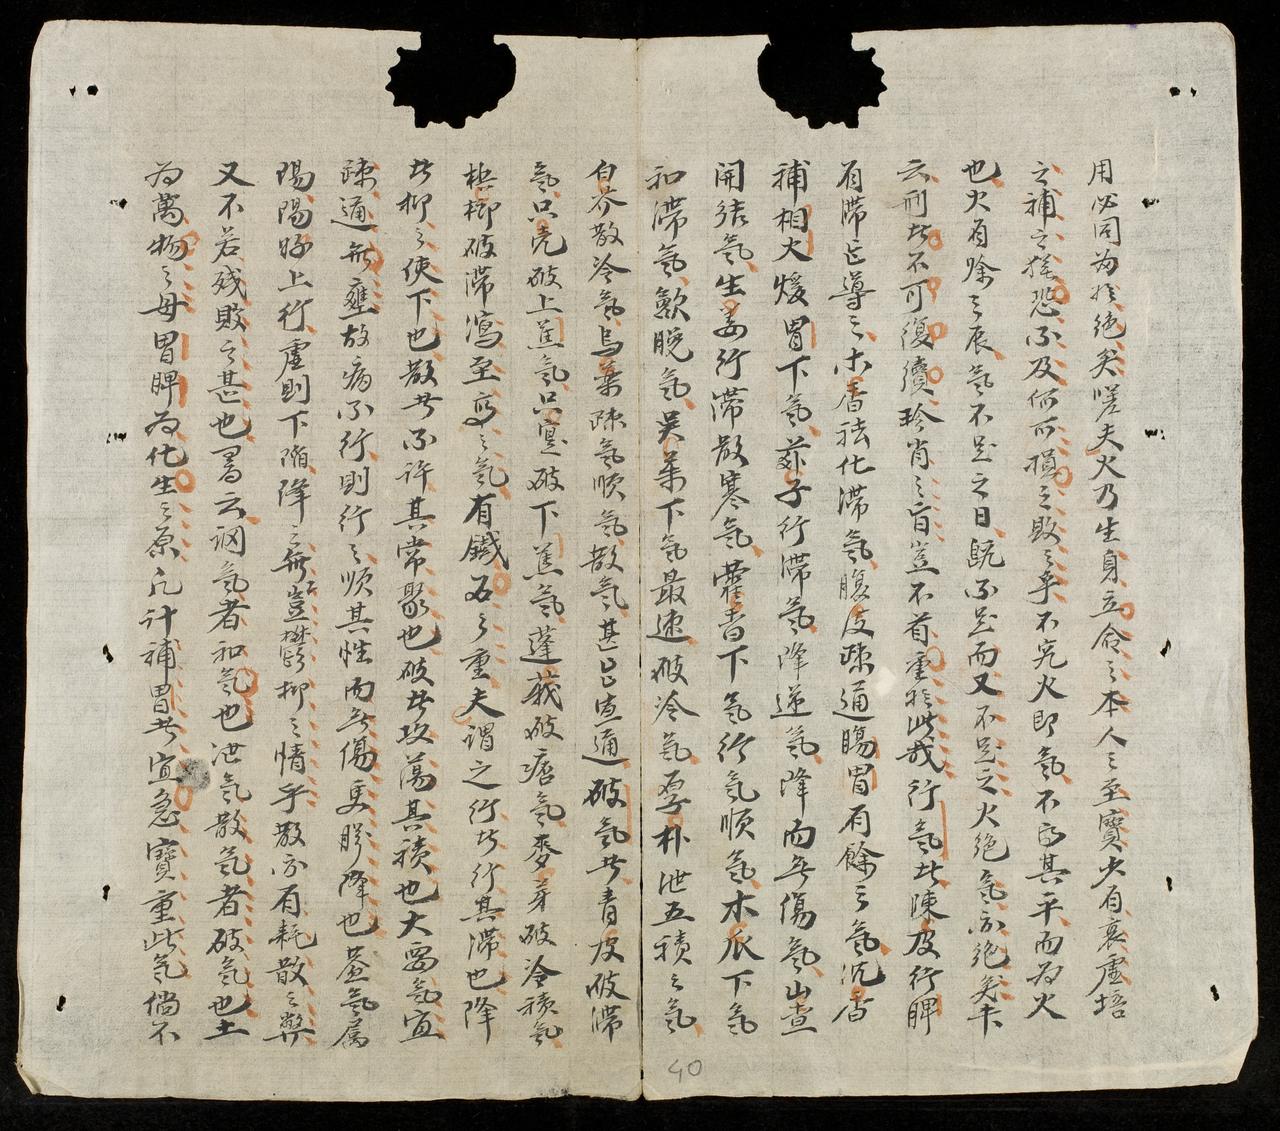 用必同為於絶矣嗟夫火乃生身立命之本人之至寶夫有衰虛培
之補之猶恐不及何所損之敗之乎不究火即氣不得其平而為火
也火有餘之辰氣不足之日既不足而又不足之火絶氣亦絶矣
云刑者不可復續珍肖之旨豈不有重於此哉行氣者陳及行脾
有滯亦導之木香祛化滯氣腹皮疎通腸胃有餘之氣沉香
補相火煖胃下氣蘇子行滯氣降逆氣降而無傷氣山查
開結氣生姜行滯散寒氣藿香下氣行氣順氣木瓜下氣
和滯氣歛脫氣吳茱下氣最速破冷氣厚朴泄五積之氣
白芥散冷氣烏藥疎氣順氣散氣甚宣通破氣者青皮破滯
氣只壳破上焦氣只寔破下焦氣蓬莪破瘀氣麥芽破冷積氣
檳榔破滯瀉至高之氣有鐵石之重夫謂之行者行其滯也降
者抑之使下也散者不許其常聚也破者攻蕩其積也大要氣宜
疎通無壅故病不行則行之順其性而無傷更勝降也蓋氣屬
陽陽好上行虛則下陷降之無豈欝抑之情乎散亦有耗散之弊
又不若殘敗之甚也書云調氣者和氣也泄氣散氣者破氣也土
為萬物之母胃脾為化生之原凡計補胃者宜急寶重此氣倘不
40